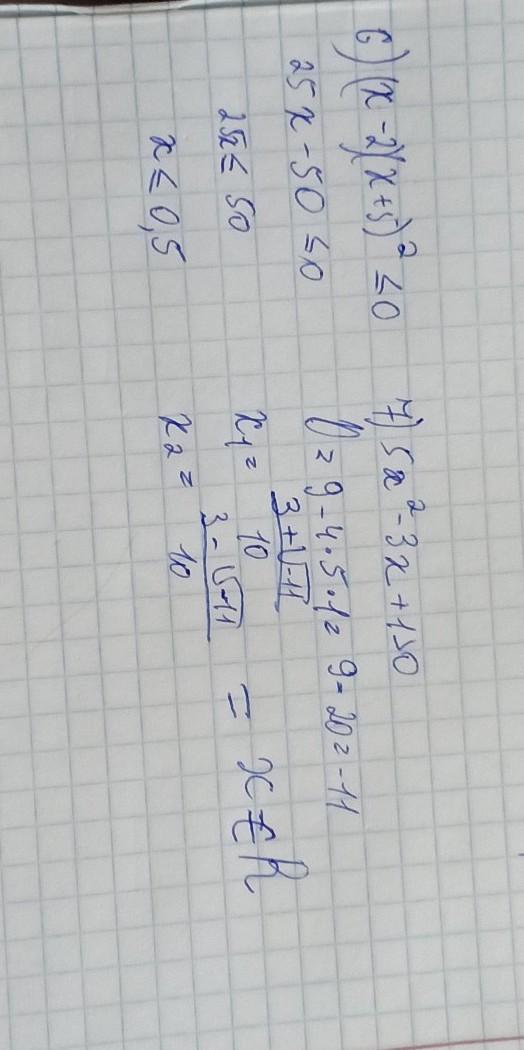 6) (x-2)(x+5)² ≤ 0
25x - 50 ≤ 0
25x ≤ 50
x ≤ 0,5
7) 5x² - 3x + 1 > 0
D = 9 - 4·5·1 = 9 - 20 = -11
x₁ = (3 + √-11)/10
x₂ = (3 - √-11)/10 = x ∈ R